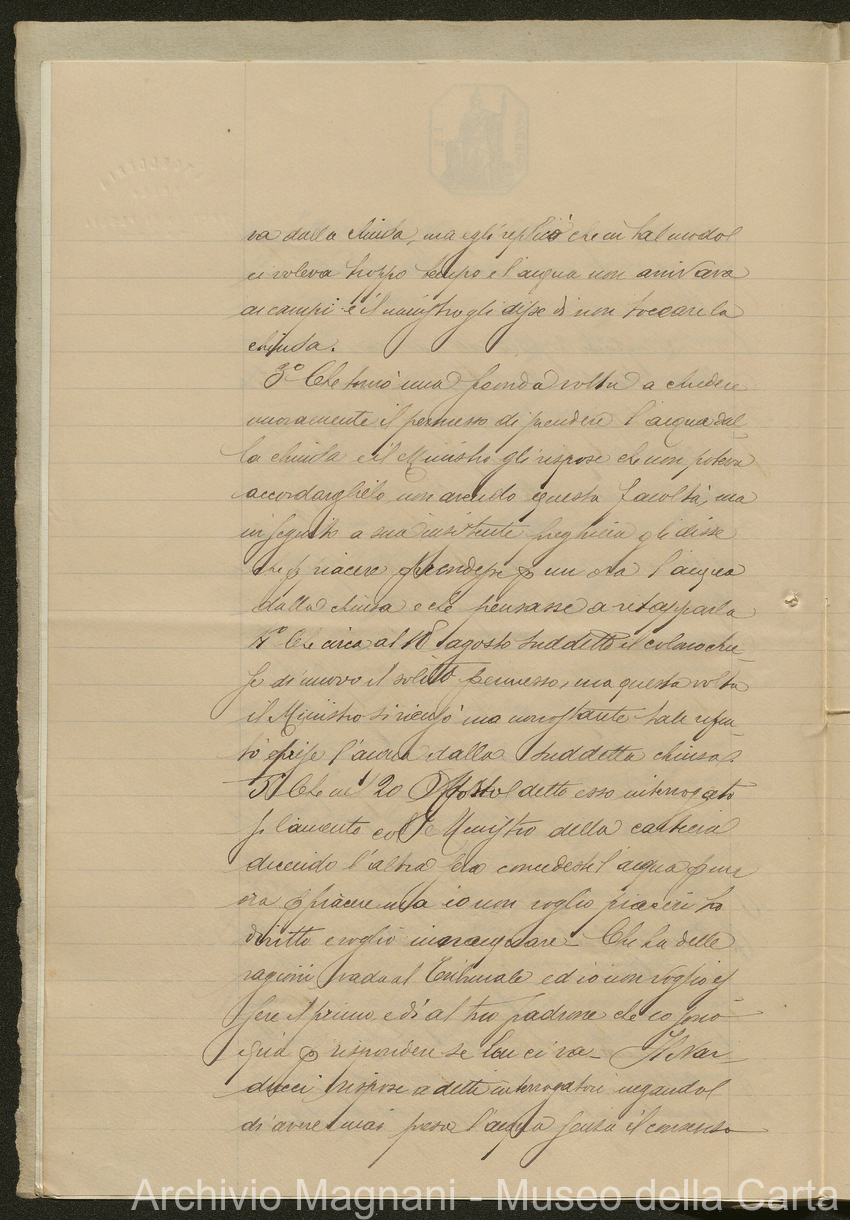 va dalla chiusa, ma egli replicò che in tal modo
ci voleva troppo tempo e l'acqua non arrivava
ai campi e il ministro gli disse di non toccare la
chiusa.
3º Che tornò una seconda volta a chiedere
nuovamente il permesso di prendere l'acqua dal
la chiusa e il Ministro gli rispose che non poteva
accordarglielo non avendo questa facoltà, ma
in seguito a sua insistente preghiera gli disse
che p piacere prendesse p un ora l'acqua
dalla chiusa e che pensasse a ritapparla
4º Che circa al 18 agosto suddetto il colono chie=
se di nuovo il solito permesso, ma questa volta
il Ministro si ricusò ma nonostante tale rifiu=
to prese l'acqua dalla suddetta chiusa.
5º Che nel 20 Agosto detto esso interrogato
si lamentò col Ministro della cartiera
dicendo l'altra sera concedesti l'acqua p un
ora p piacere ma io non voglio piaceri ho
diritto e voglio innacquare _ Chi ha delle
ragioni vada al Tribunale ed io non voglio es
sere il primo, e di' al tuo padrone che io sono
quà p rispondere se lui ci va _ Il Nar_
ducci rispose a detti interrogatori negando
di avere mai presa l'acqua senza il consenso
Archivio Magnani - Museo della Carta